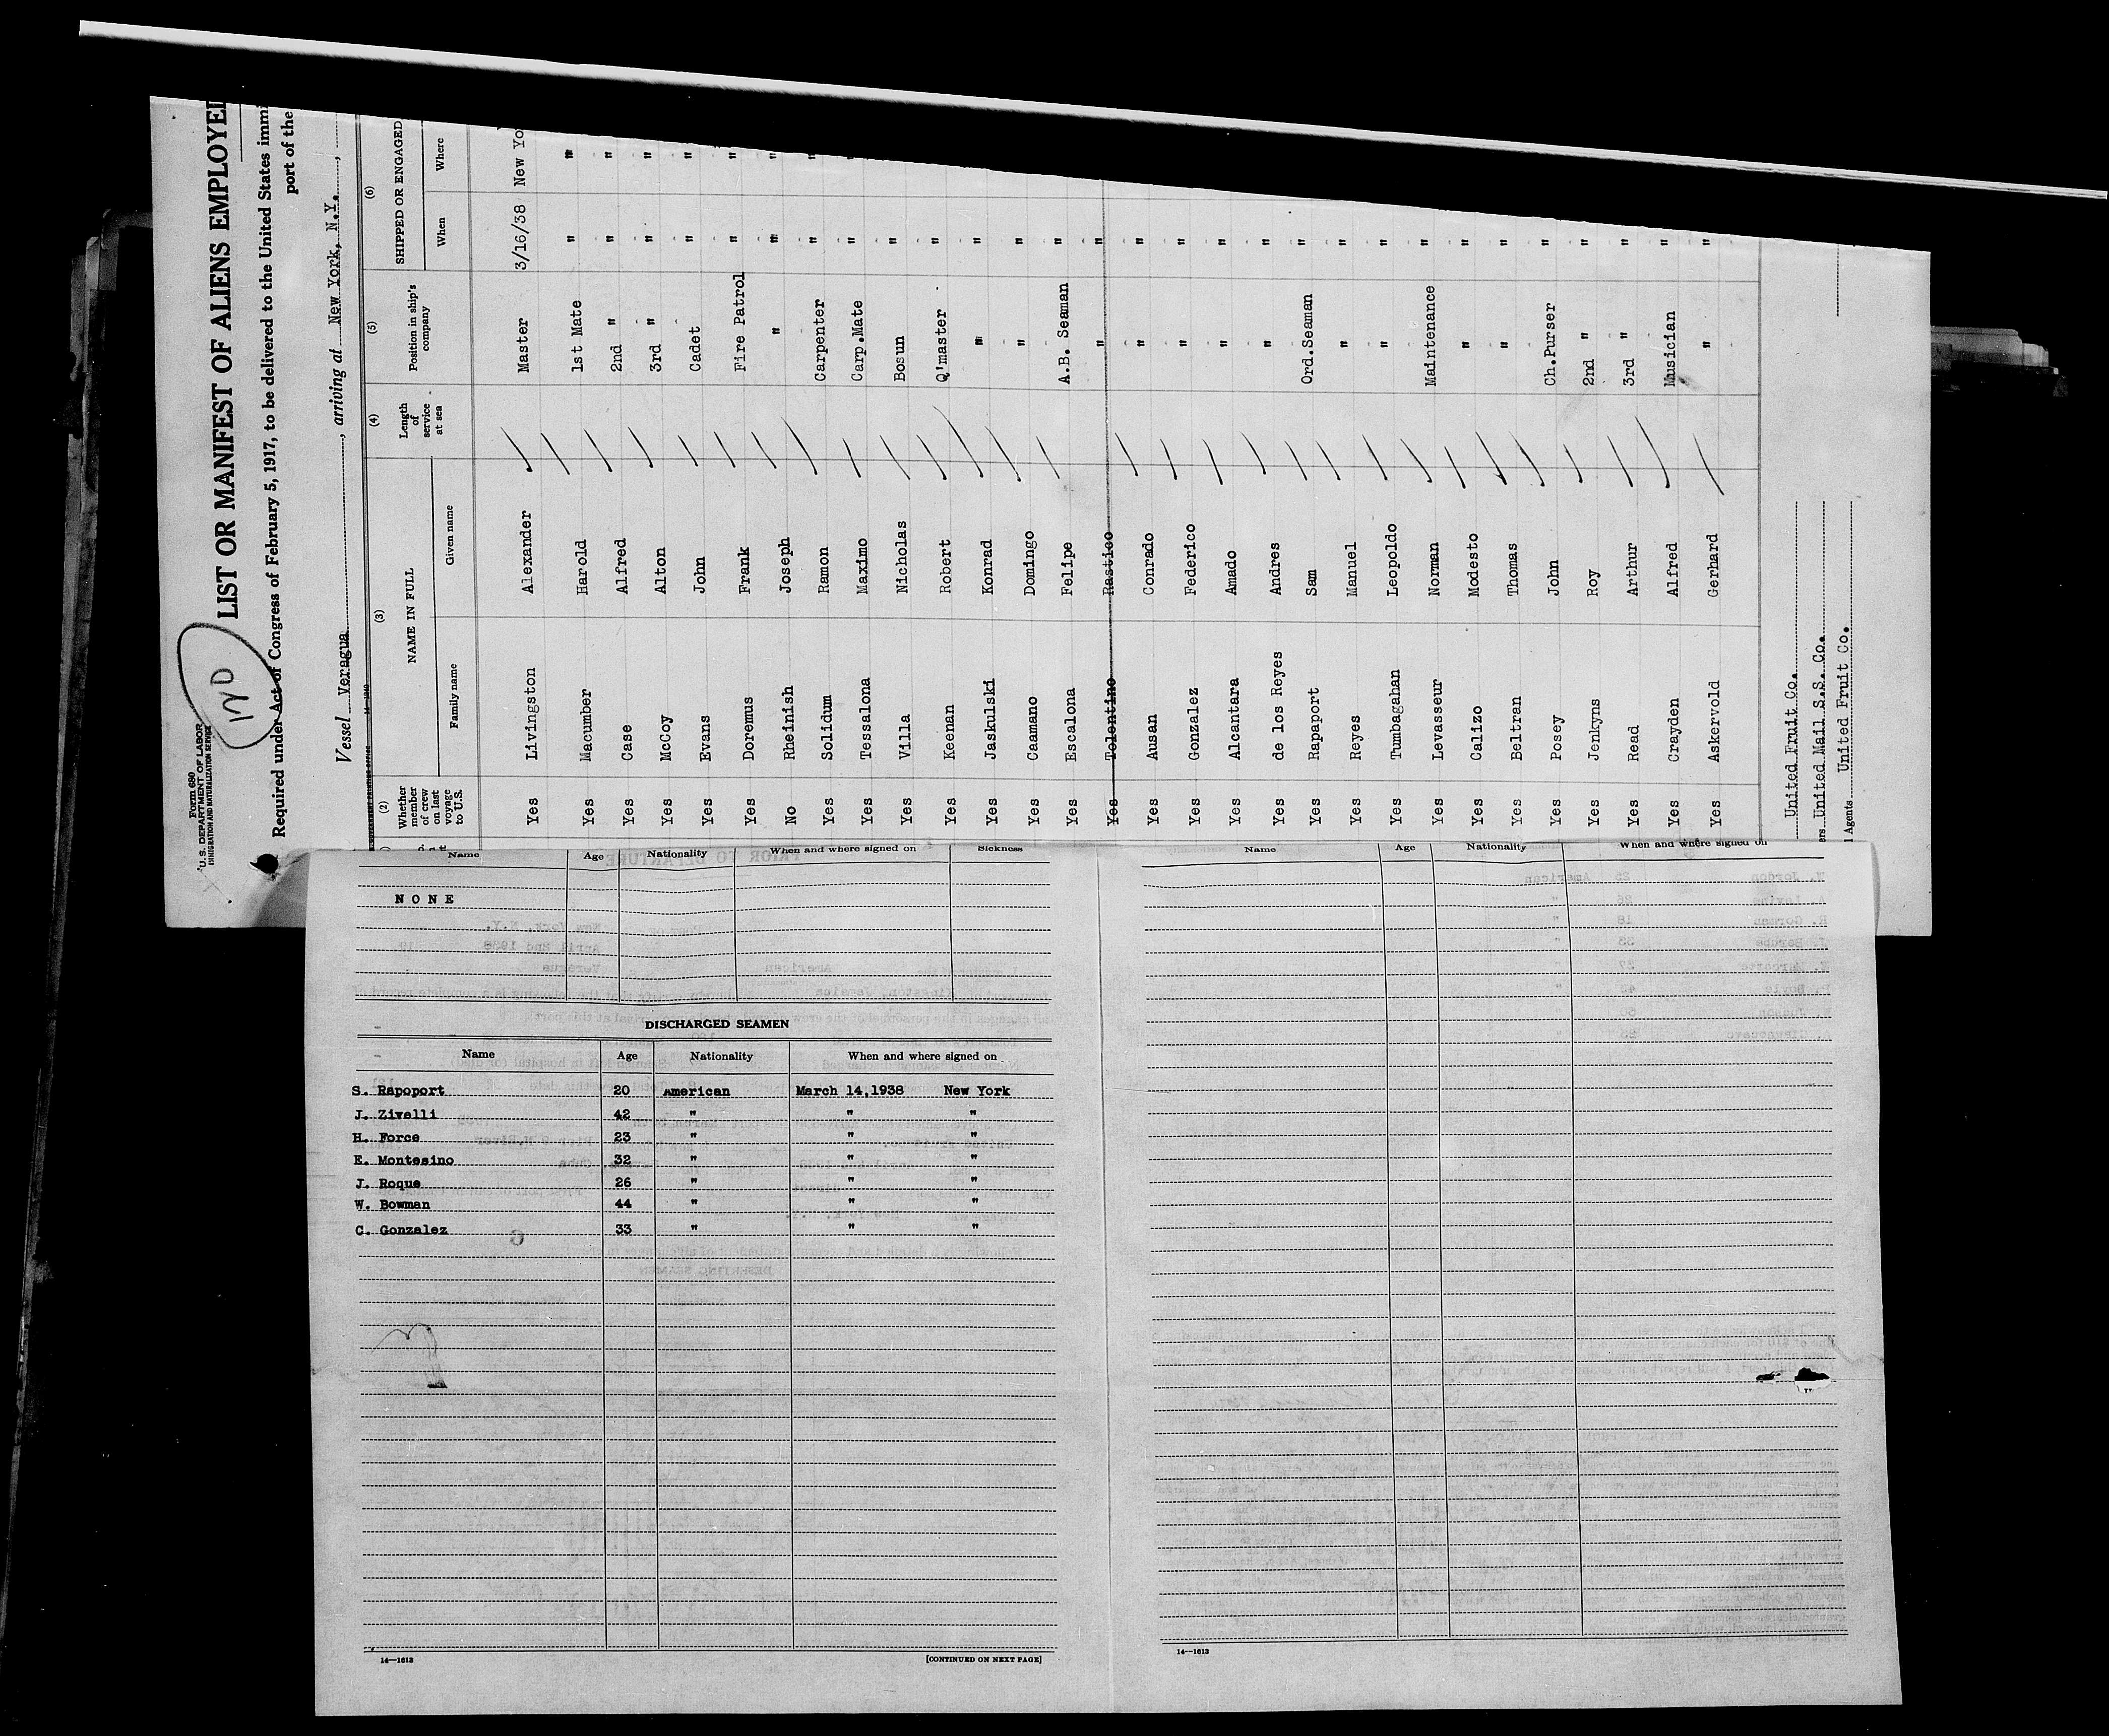 Form 680
U.S. DEPARTMENT OF LABOR
IMMIGRATION AND NATURALIZATION SERVICE
LIST OR MANIFEST OF ALIENS EMPLOYE
Required under Act of Congress of February 5, 1917, to be delivered to the United States immi
port of the
Vessel Veragua, arriving at New York, N.Y.,
(2) (3) (4) (5) (6)
Whether member of crew on last voyage to U.S. NAME IN FULL Length of service at sea Position in ship's company SHIPPED OR ENGAGED
Family name Given name When Where
Yes Livingston Alexander Master 3/16/38 New Yo
Yes Macumber Harold 1st Mate " "
Yes Case Alfred 2nd " " "
Yes McCoy Alton 3rd " " "
Yes Evans John Cadet " "
Yes Doremus Frank Fire Patrol " "
No Rheinish Joseph " " "
Yes Solidum Ramon Carpenter " "
Yes Tessalona Maximo Carp.Mate " "
Yes Villa Nicholas Bosun "
Yes Keenan Robert Q'master "
Yes Jaskulski Konrad " "
Yes Caamano Domingo " "
Yes Escalona Felipe A.B. Seaman "
Yes Tolentino Rastico " "
Yes Ausan Conrado " "
Yes Gonzalez Federico " "
Yes Alcantara Amado " "
Yes de los Reyes Andres " "
Yes Rapaport Sam Ord.Seaman "
Yes Reyes Manuel " "
Yes Tumbagahan Leopoldo " "
Yes Levasseur Norman Maintenance "
Yes Calizo Modesto " "
Yes Beltran Thomas " "
Yes Posey John Ch.Purser "
Yes Jenkyns Roy 2nd " "
Yes Read Arthur 3rd " "
Yes Crayden Alfred Musician "
Yes Askervold Gerhard " "
United Fruit Co.
ers United Mail S.S. Co.
l Agents United Fruit Co.
Name Age Nationality When and where signed on Sickness
NONE
DISCHARGED SEAMEN
Name Age Nationality When and where signed on
S. Rapoport 20 American March 14,1938 New York
J. Zivelli 42 " " "
H. Force 23 " " "
E. Montesino 32 " " "
J. Roque 26 " " "
W. Bowman 44 " " "
C. Gonzalez 33 " " "
14—1613 [CONTINUED ON NEXT PAGE]
Name Age Nationality When and where signed on
14—1613